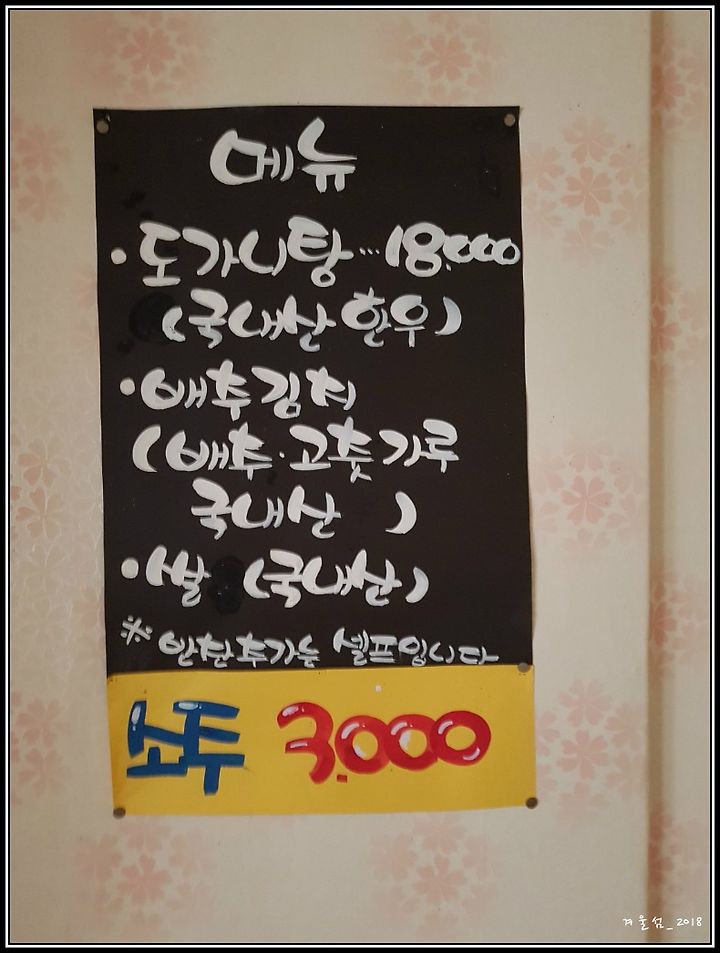 메뉴
· 도가니탕 … 18.000
(국내산 한우)
· 배추김치
(배추 · 고춧가루
국내산 )
· 쌀 (국내산)
※ 반찬추가는 셀프입니다
소주 3.000
겨울섬_2018